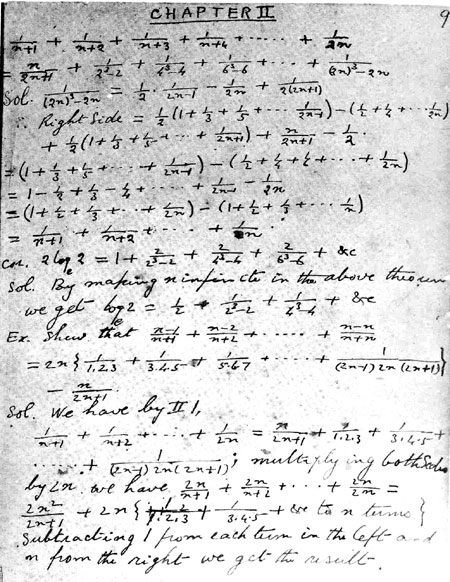 CHAPTER II
9
1/(n+1) + 1/(n+2) + 1/(n+3) + 1/(n+4) + ...... + 1/2n
= n/(2n+1) + 1/(2³-2) + 1/(4³-4) + 1/(6³-6) + ... + 1/((2n)³-2n)
Sol. 1/((2n)³-2n) = 1/2 · 1/(2n-1) - 1/2n + 1/(2(2n+1))
∴ Right Side = 1/2(1 + 1/3 + 1/5 + ... 1/(2n-1)) - (1/2 + 1/4 + ... 1/2n)
+ 1/2(1 + 1/3 + 1/5 + ... + 1/(2n+1)) + n/(2n+1) - 1/2.
= (1 + 1/3 + 1/5 + ... + 1/(2n-1)) - (1/2 + 1/4 + 1/6 + ... + 1/2n)
= 1 - 1/2 + 1/3 - 1/4 + .... + 1/(2n-1) - 1/2n
= (1 + 1/2 + 1/3 + ... + 1/2n) - (1 + 1/2 + 1/3 + ... 1/n)
= 1/(n+1) + 1/(n+2) + .... + 1/2n.
Cor. 2 logₑ2 = 1 + 2/(2³-2) + 2/(4³-4) + 2/(6³-6) + &c
Sol. By making n infinite in the above theorem
we get logₑ2 = 1/2 + 1/(2³-2) + 1/(4³-4) + &c
Ex. Shew that (n-1)/(n+1) + (n-2)/(n+2) + ..... + (n-n)/(n+n)
= 2n { 1/1.2.3 + 1/3.4.5 + 1/5.6.7 + .... + 1/((2n-1) 2n (2n+1)) }
- n/(2n+1).
Sol. We have by II 1,
1/(n+1) + 1/(n+2) + .... + 1/2n = n/(2n+1) + 1/1.2.3 + 1/3.4.5 +
...... + 1/((2n-1) 2n (2n+1)); multiplying both sides
by 2n we have 2n/(n+1) + 2n/(n+2) + ... + 2n/2n =
2n²/(2n+1) + 2n { 1/1.2.3 + 1/3.4.5 + &c to n terms }
Subtracting 1 from each term in the left and
n from the right we get the result.